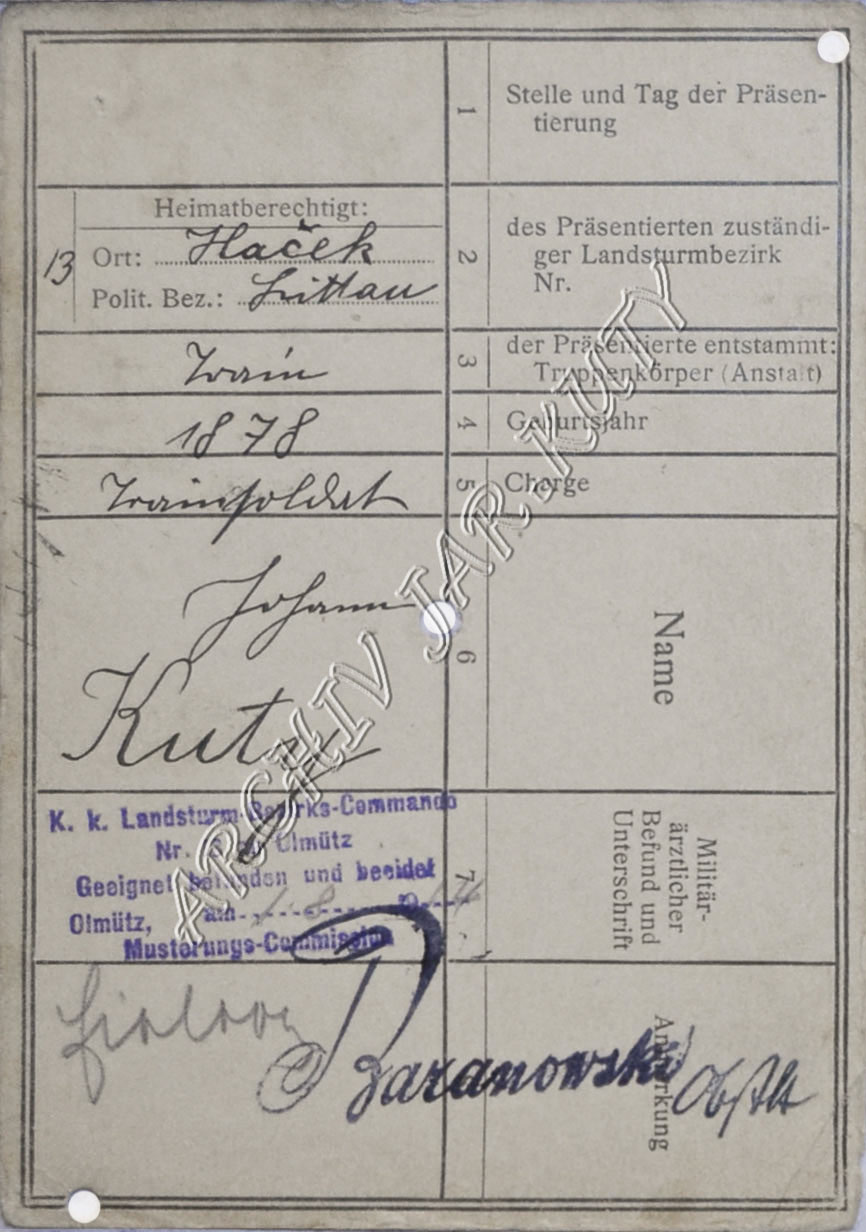 1
Stelle und Tag der Präsen-
tierung
Heimatberechtigt:
13
Ort: Haček
Polit. Bez.: Littau
2
des Präsentierten zuständi-
ger Landsturmbezirk
Nr.
Train
3
der Präsentierte entstammt:
Truppenkörper (Anstalt)
1878
4
Geburtsjahr
Trainsoldat
5
Charge
Johann
Kuty
6
Name
K. k. Landsturm-Bezirks-Commando
Nr. 13 Olmütz
Geeignet befunden und beeidet
Olmütz, am 1. 8. 1914
Musterungs-Commission
7
Militär-
ärztlicher
Befund und
Unterschrift
Baranowski Obstlt
Anmerkung
ARCHIV JAR. KUTY